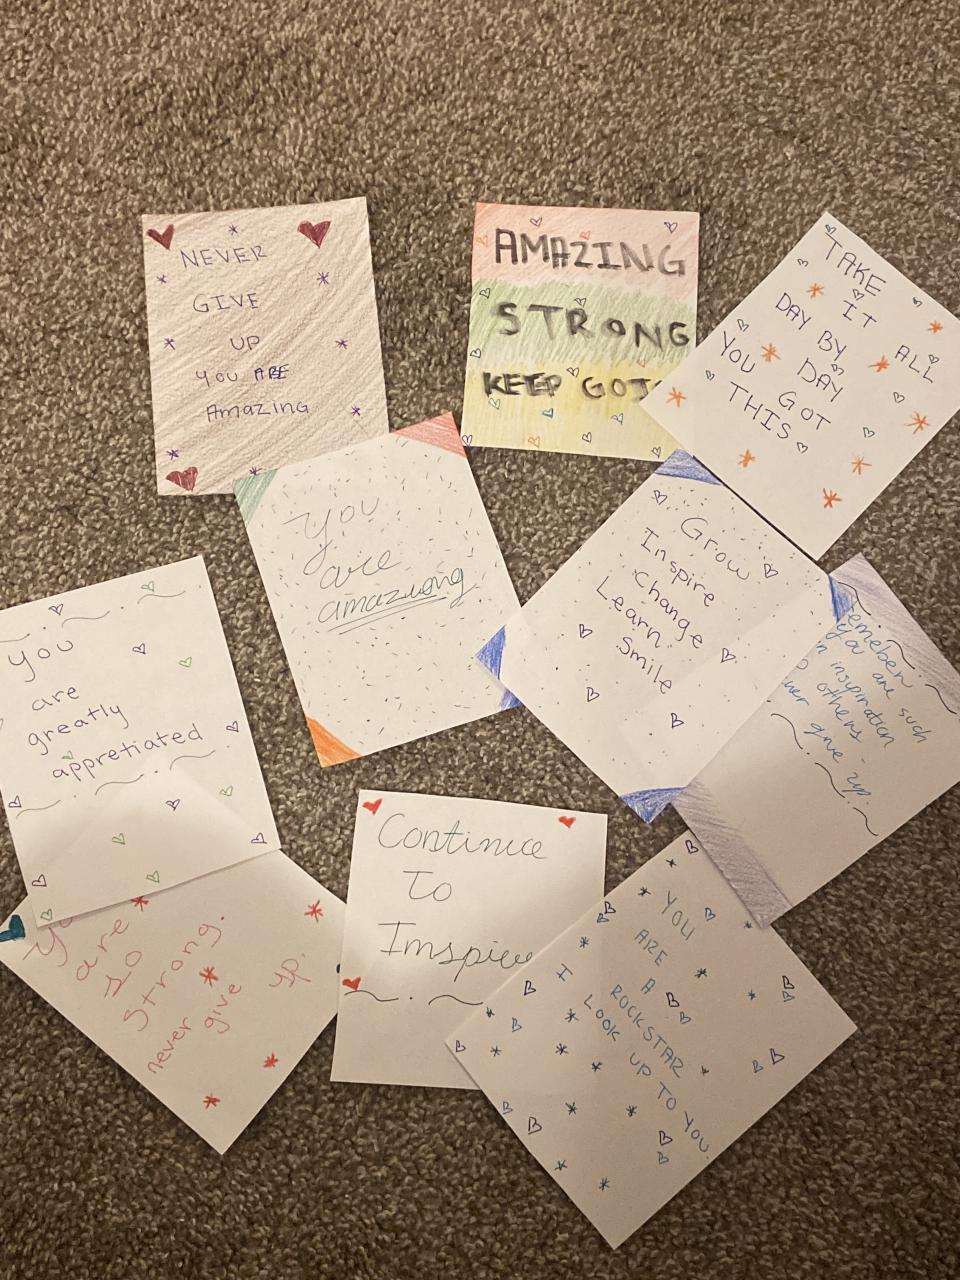 NEVER
GIVE
UP
YOU ARE
Amazing
AMAZING
STRONG
KEEP
TAKE
IT ALL
DAY BY DAY
YOU GOT
THIS
you
are
amazing
Grow
Inspire
Change
Learn
Smile
you are such
inspiration
others
give up.
you
are
greatly
appretiated
are
so
strong.
never give up.
Continue
To
Inspire
YOU
ARE
A
ROCKSTAR
I LOOK UP TO YOU.